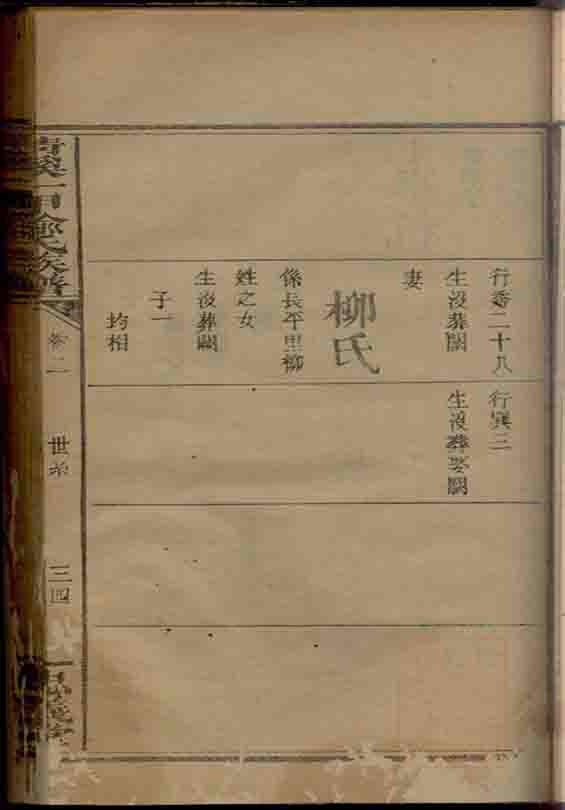 行番二十八
生沒葬闕
妻
柳氏
係長平里柳
姓之女
生沒葬闕
子一
均相
行巽三
生沒葬娶闕
溪一甲俞氏族譜
卷二
世系
三四